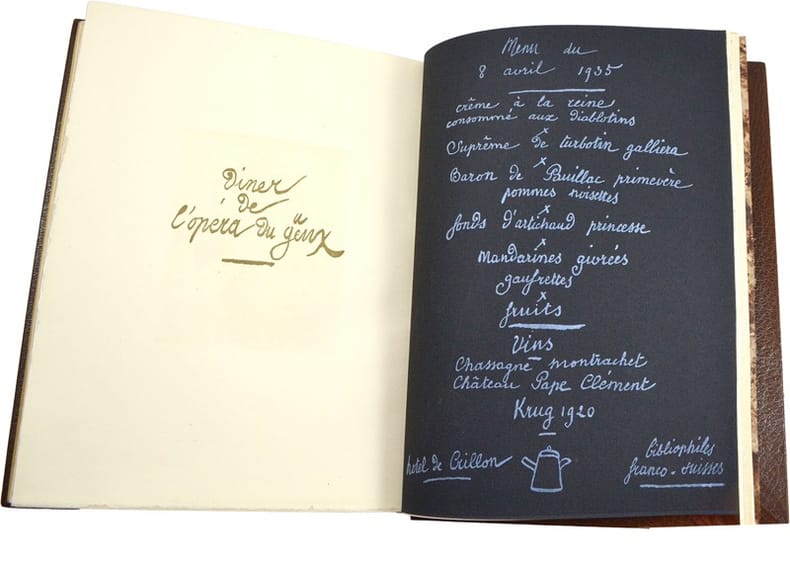 Diner
de
l'opéra du güeux
Menu du
8 avril 1935
crême à la reine
consommé aux diablotins
x
Suprême de turbotin galliera
x
Baron de Pauillac primevère
pommes noisettes
x
fonds d'artichaud princesse
x
Mandarines givrées
gaufrettes
x
fruits
Vins
Chassagne montrachet
Château Pape Clément
Krug 1920
hotel de Crillon
bibliophiles
franco-suisses